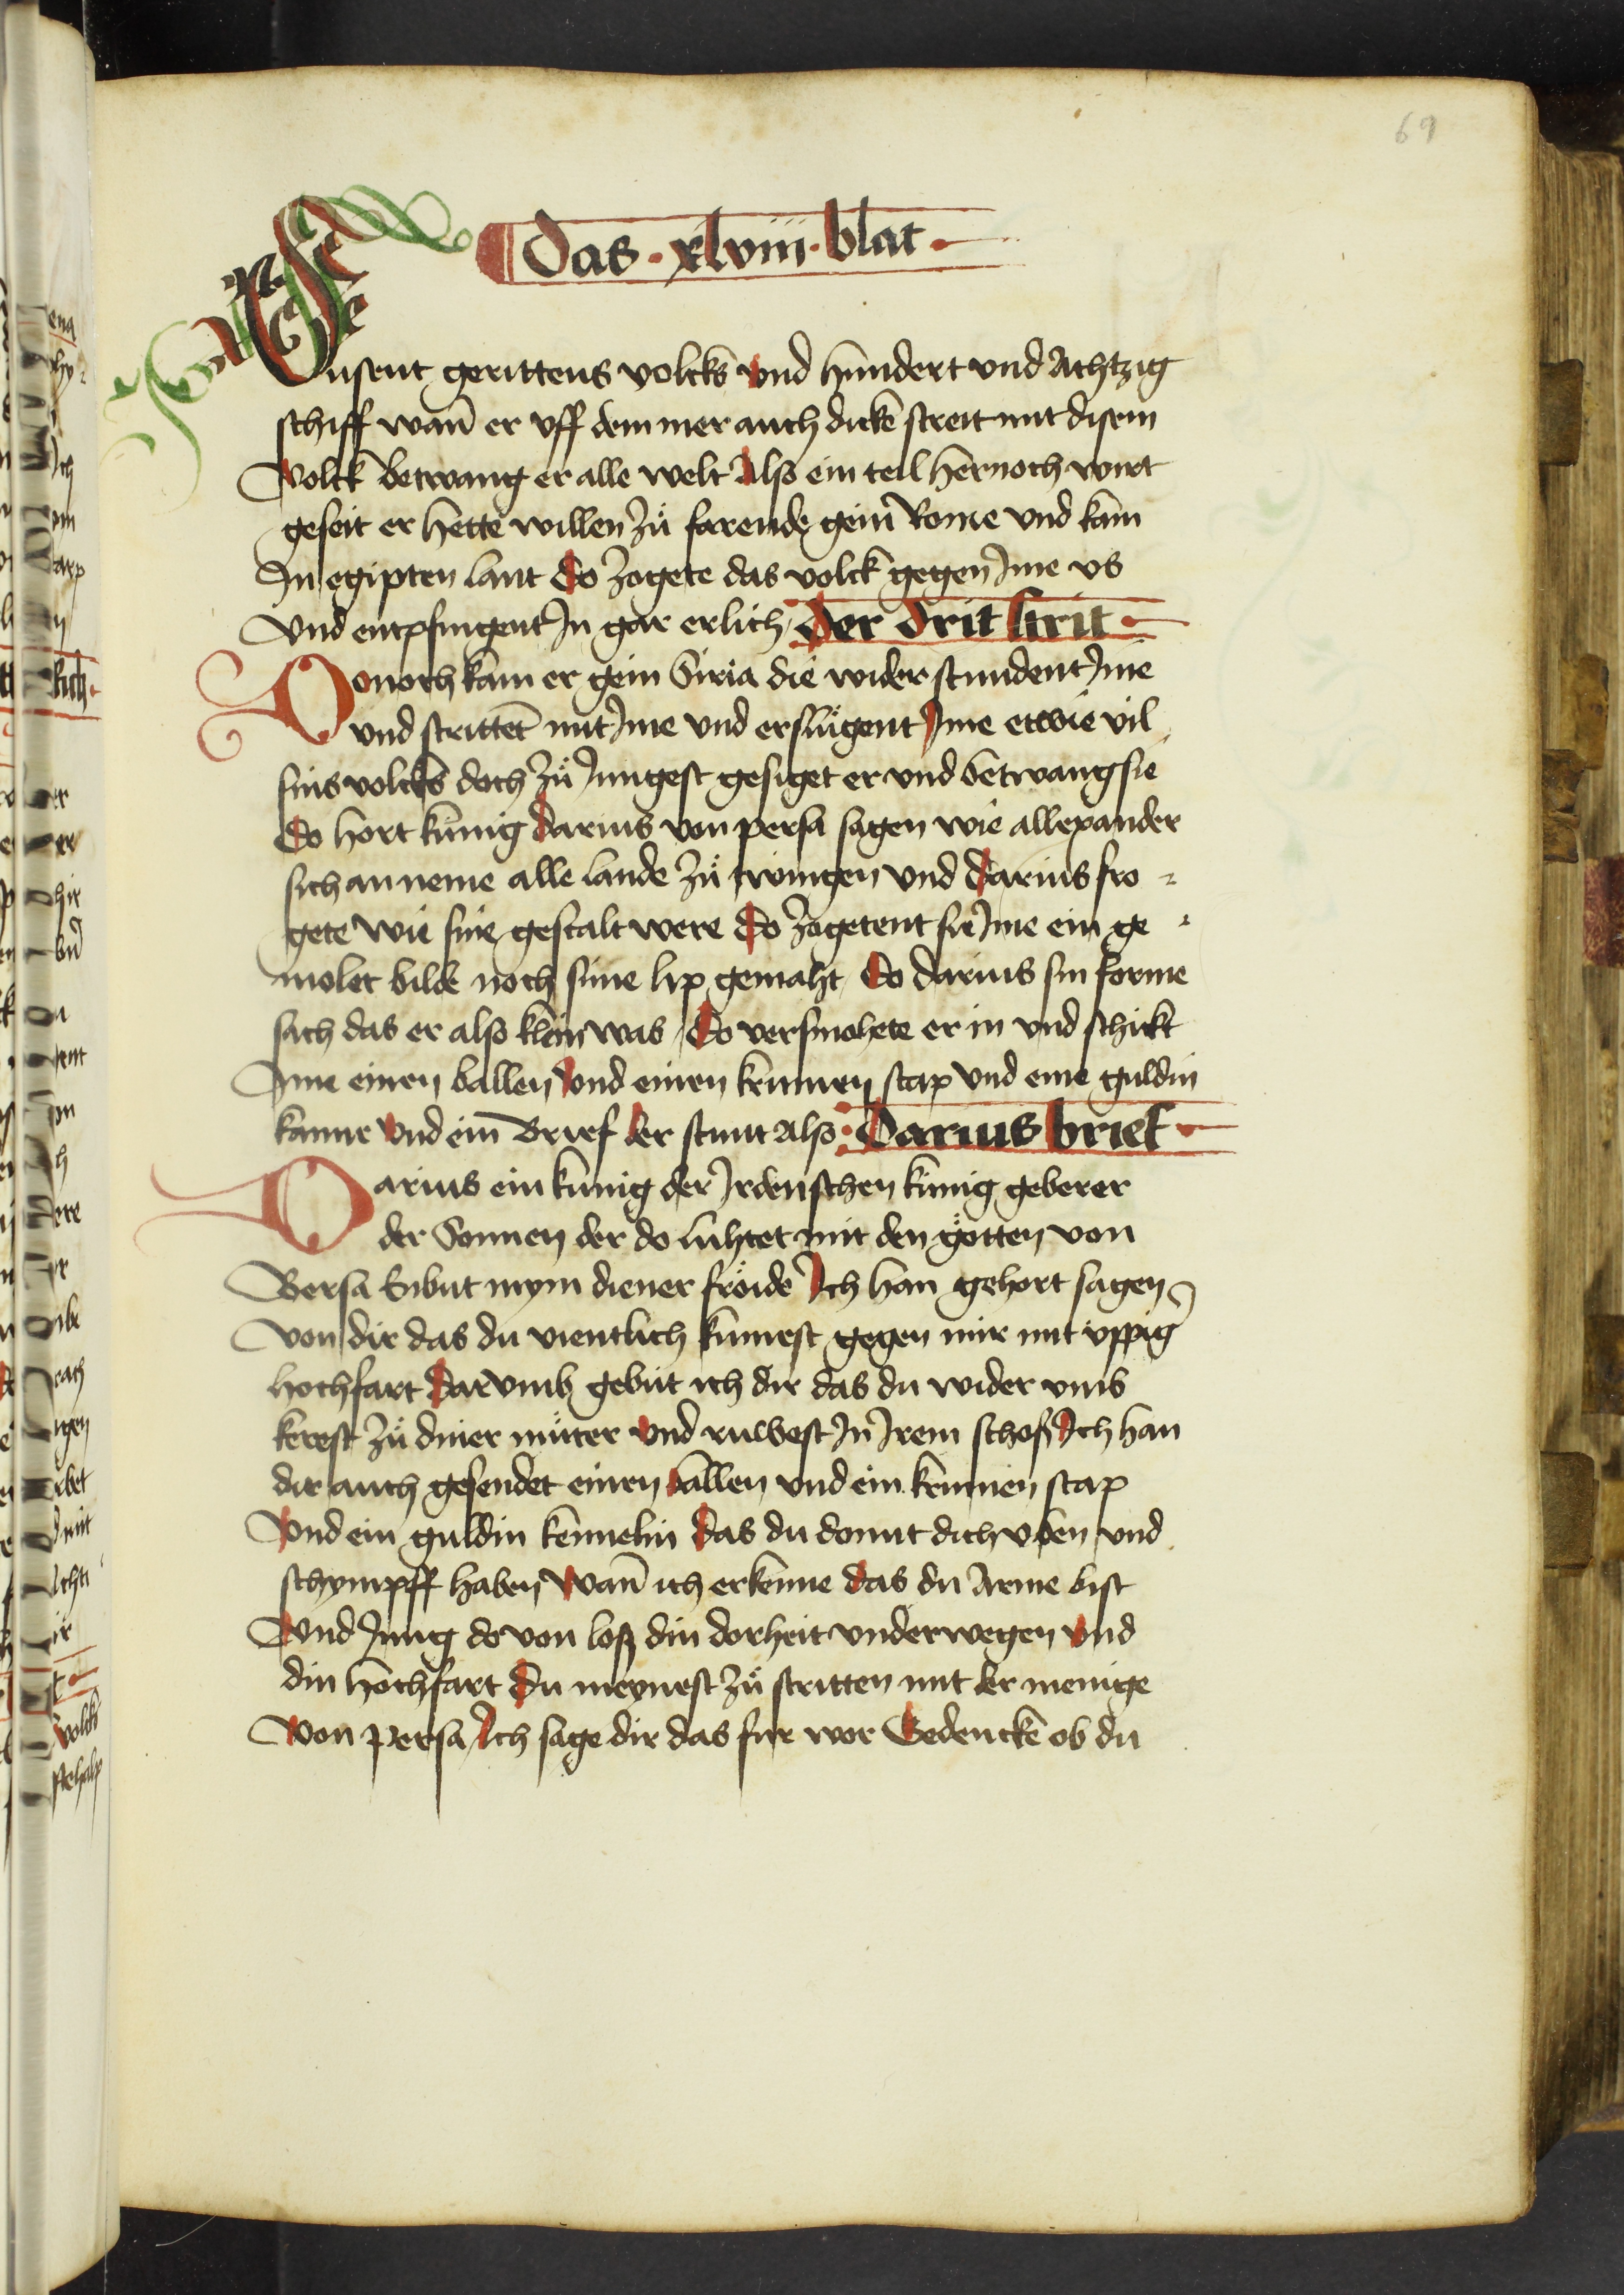 69
Das · xlviii · blat ·
Dusent gerittens volcks und hundert und Achtzig
schiff wañ er vff dem mer auch dicke streit mit disem
volck betwang er alle welt Also ein teil hernoch wirt
geseit er hette willen zů farende gein Rome und kam
In egipten lant Do zogete das volck gegen Ime vs
Und entpfingent In gar erlich Der drit strit ·
Donoch kam er gein Siria die widerstundent Ime
und stritteñt mit Ime und erslůgent Ime etwie vil
sins volcks doch zů Jungest gesiget er und betwang sie
Do hort kunig darius von persa sagen wie allexander
sich an neme alle lande zů twingen und Darius fro =
gete wie sine gestalt were Do zogetent sie Ime ein ge =
molet bilde noch sime lip gemaht Do darius sin forme
sach das er also klein was Do versmohete er in und schickt
Ime einen ballen Und einen krummen stap und eine guldin
kanne Und ein Brief der stunt also · Darius brief ·
Darius ein kunig der Irdenschen kunig geberer
der Sonnen der do luhtet mit den gȯtten von
Bersa Enbut mym diener frȯide Ich han gehort sagen
Von dir das du vientlich kumest gegen mir mit vppig
hochfart Darumb gebut ich dir das du wider vmb
kerest zů diner můter Und ruwest In Irem schoß Ich han
dir auch gesendet einen ballen und ein krummen stap
Und ein guldin kennelin Das du domit dich vben und
schympff haben Wañ ich erkenne das du Arme bist
Und Jung do von loß din dorheit underwegen Und
din hochfart Du meynest zů stritten mit der menige
Von Persa Ich sage dir das fur wor Gedencke ob du